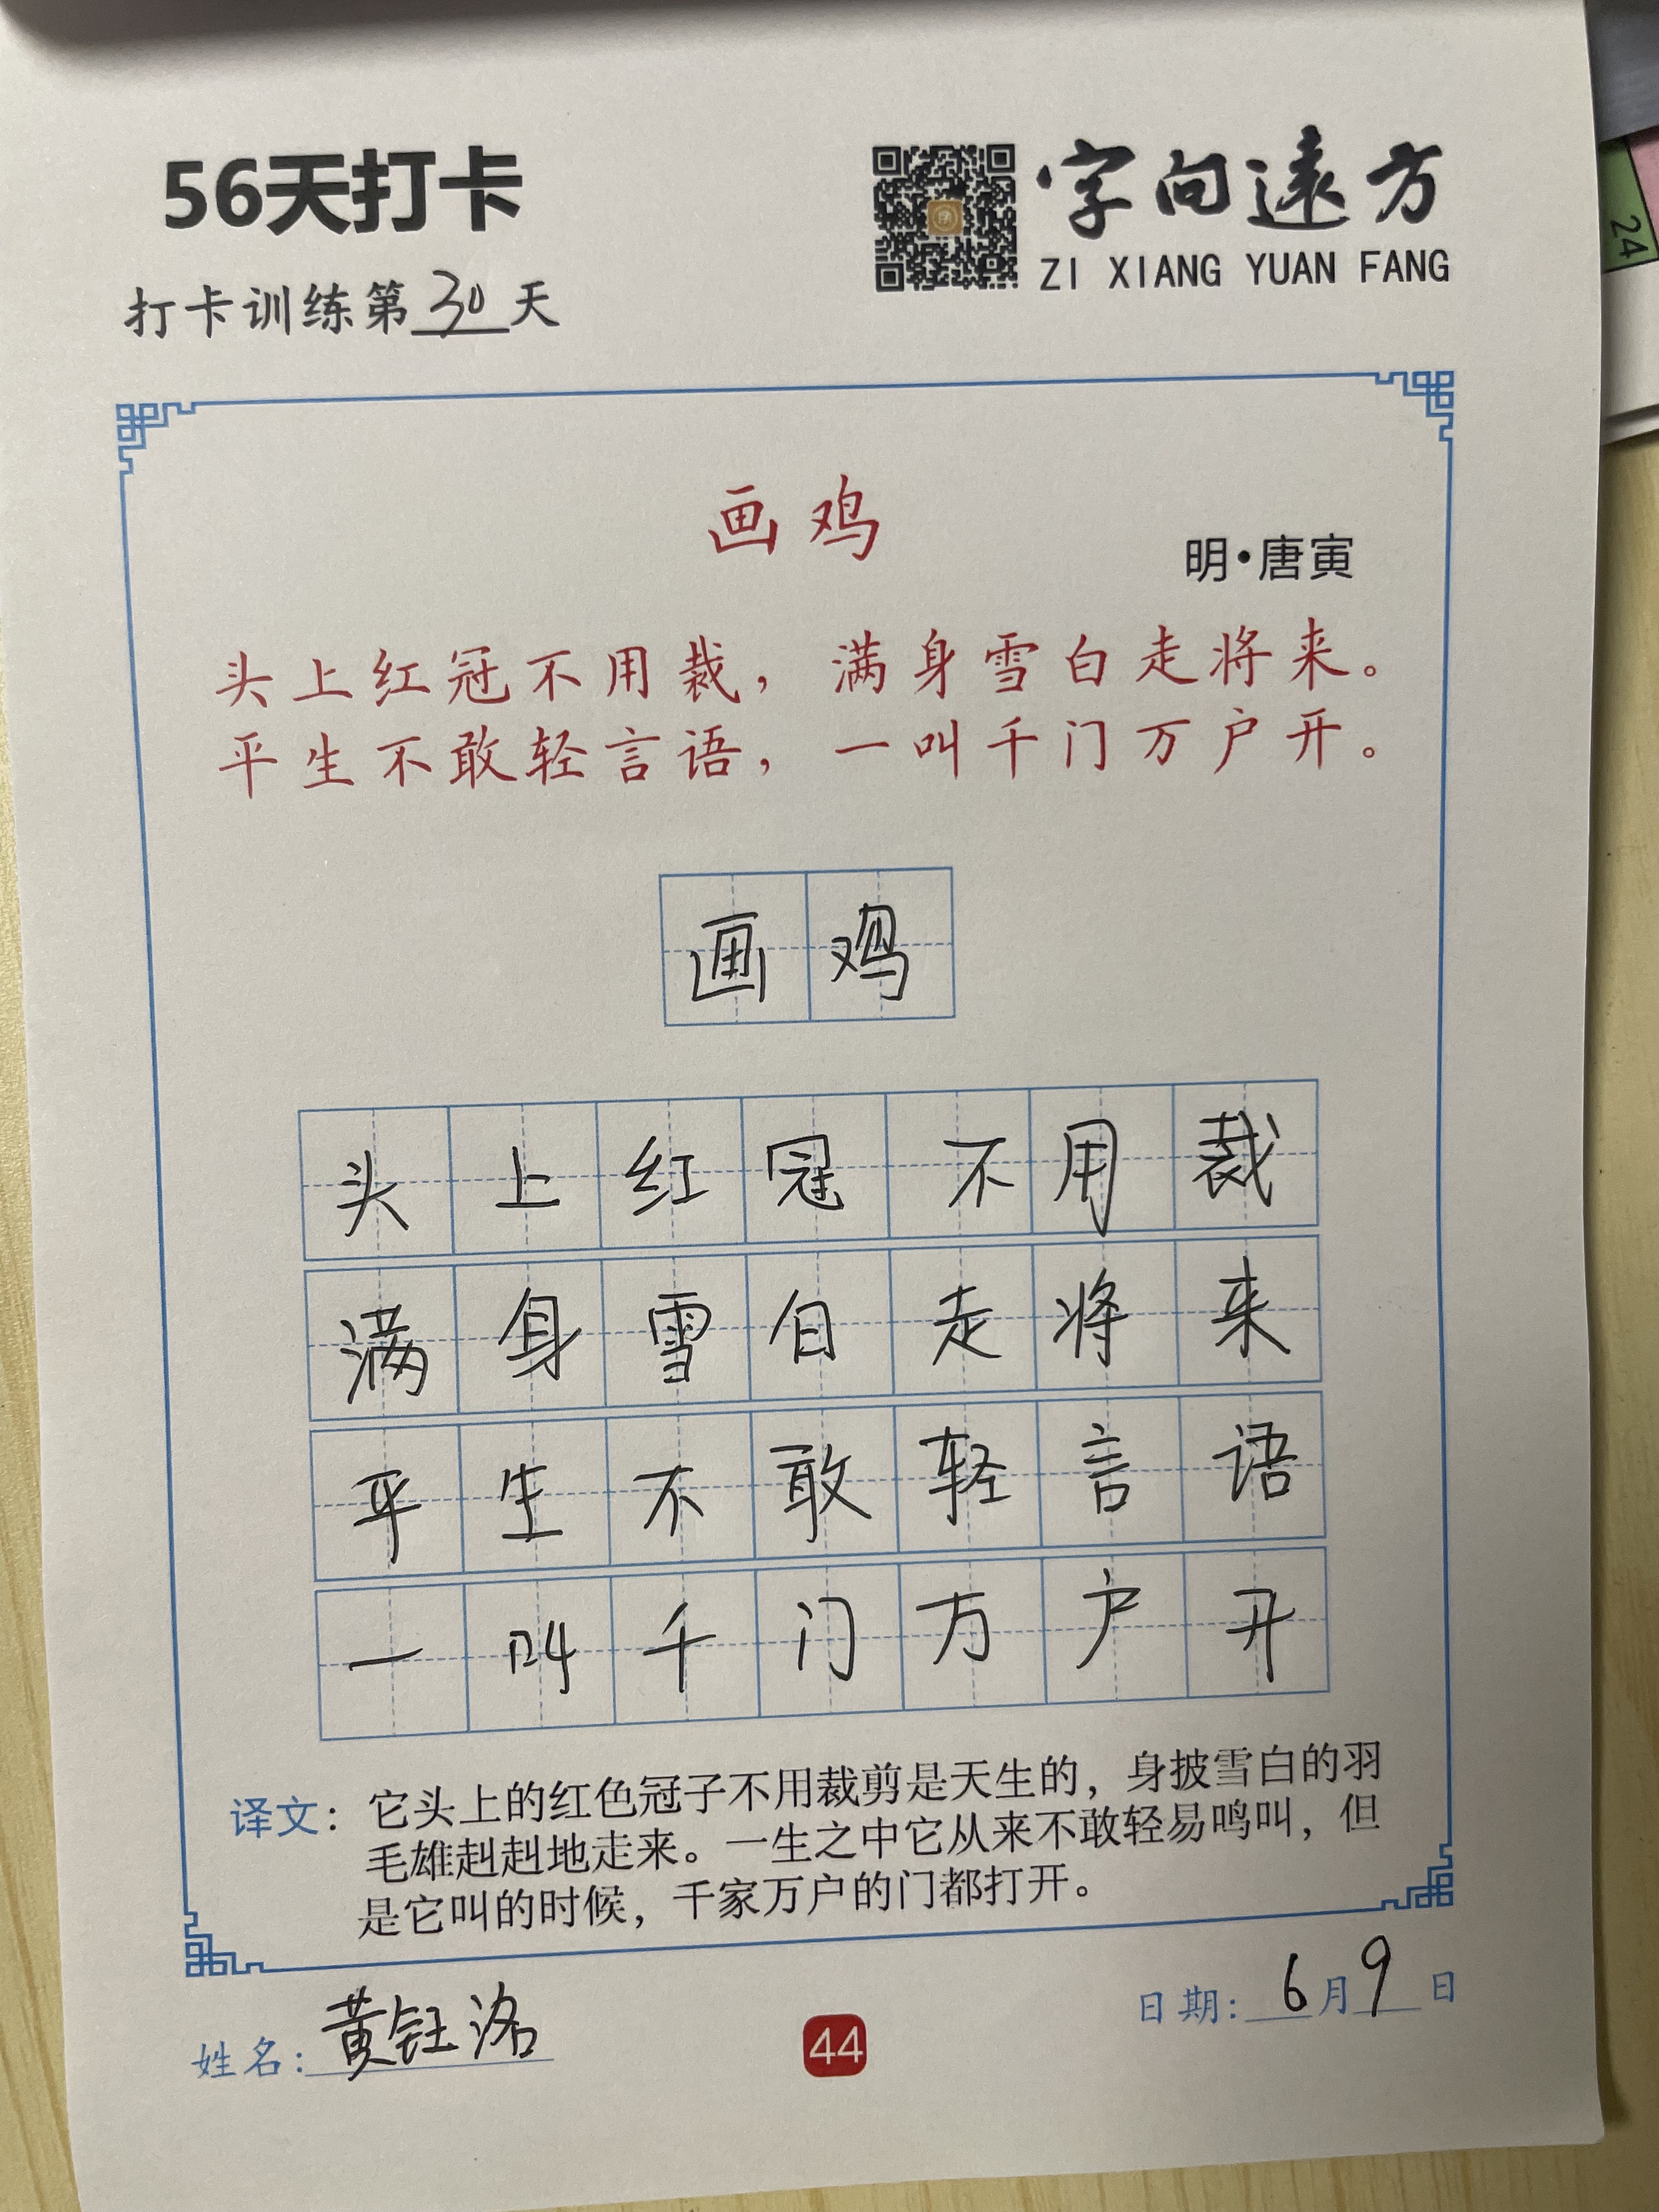 56天打卡
字向遠方
ZI XIANG YUAN FANG
打卡训练第30天
24
画鸡
明·唐寅
头上红冠不用裁，满身雪白走将来。
平生不敢轻言语，一叫千门万户开。
画鸡
头上红冠不用裁
满身雪白走将来
平生不敢轻言语
一叫千门万户开
译文：它头上的红色冠子不用裁剪是天生的，身披雪白的羽
毛雄赳赳地走来。一生之中它从来不敢轻易鸣叫，但
是它叫的时候，千家万户的门都打开。
姓名：黄钰洺
44
日期：6月9日